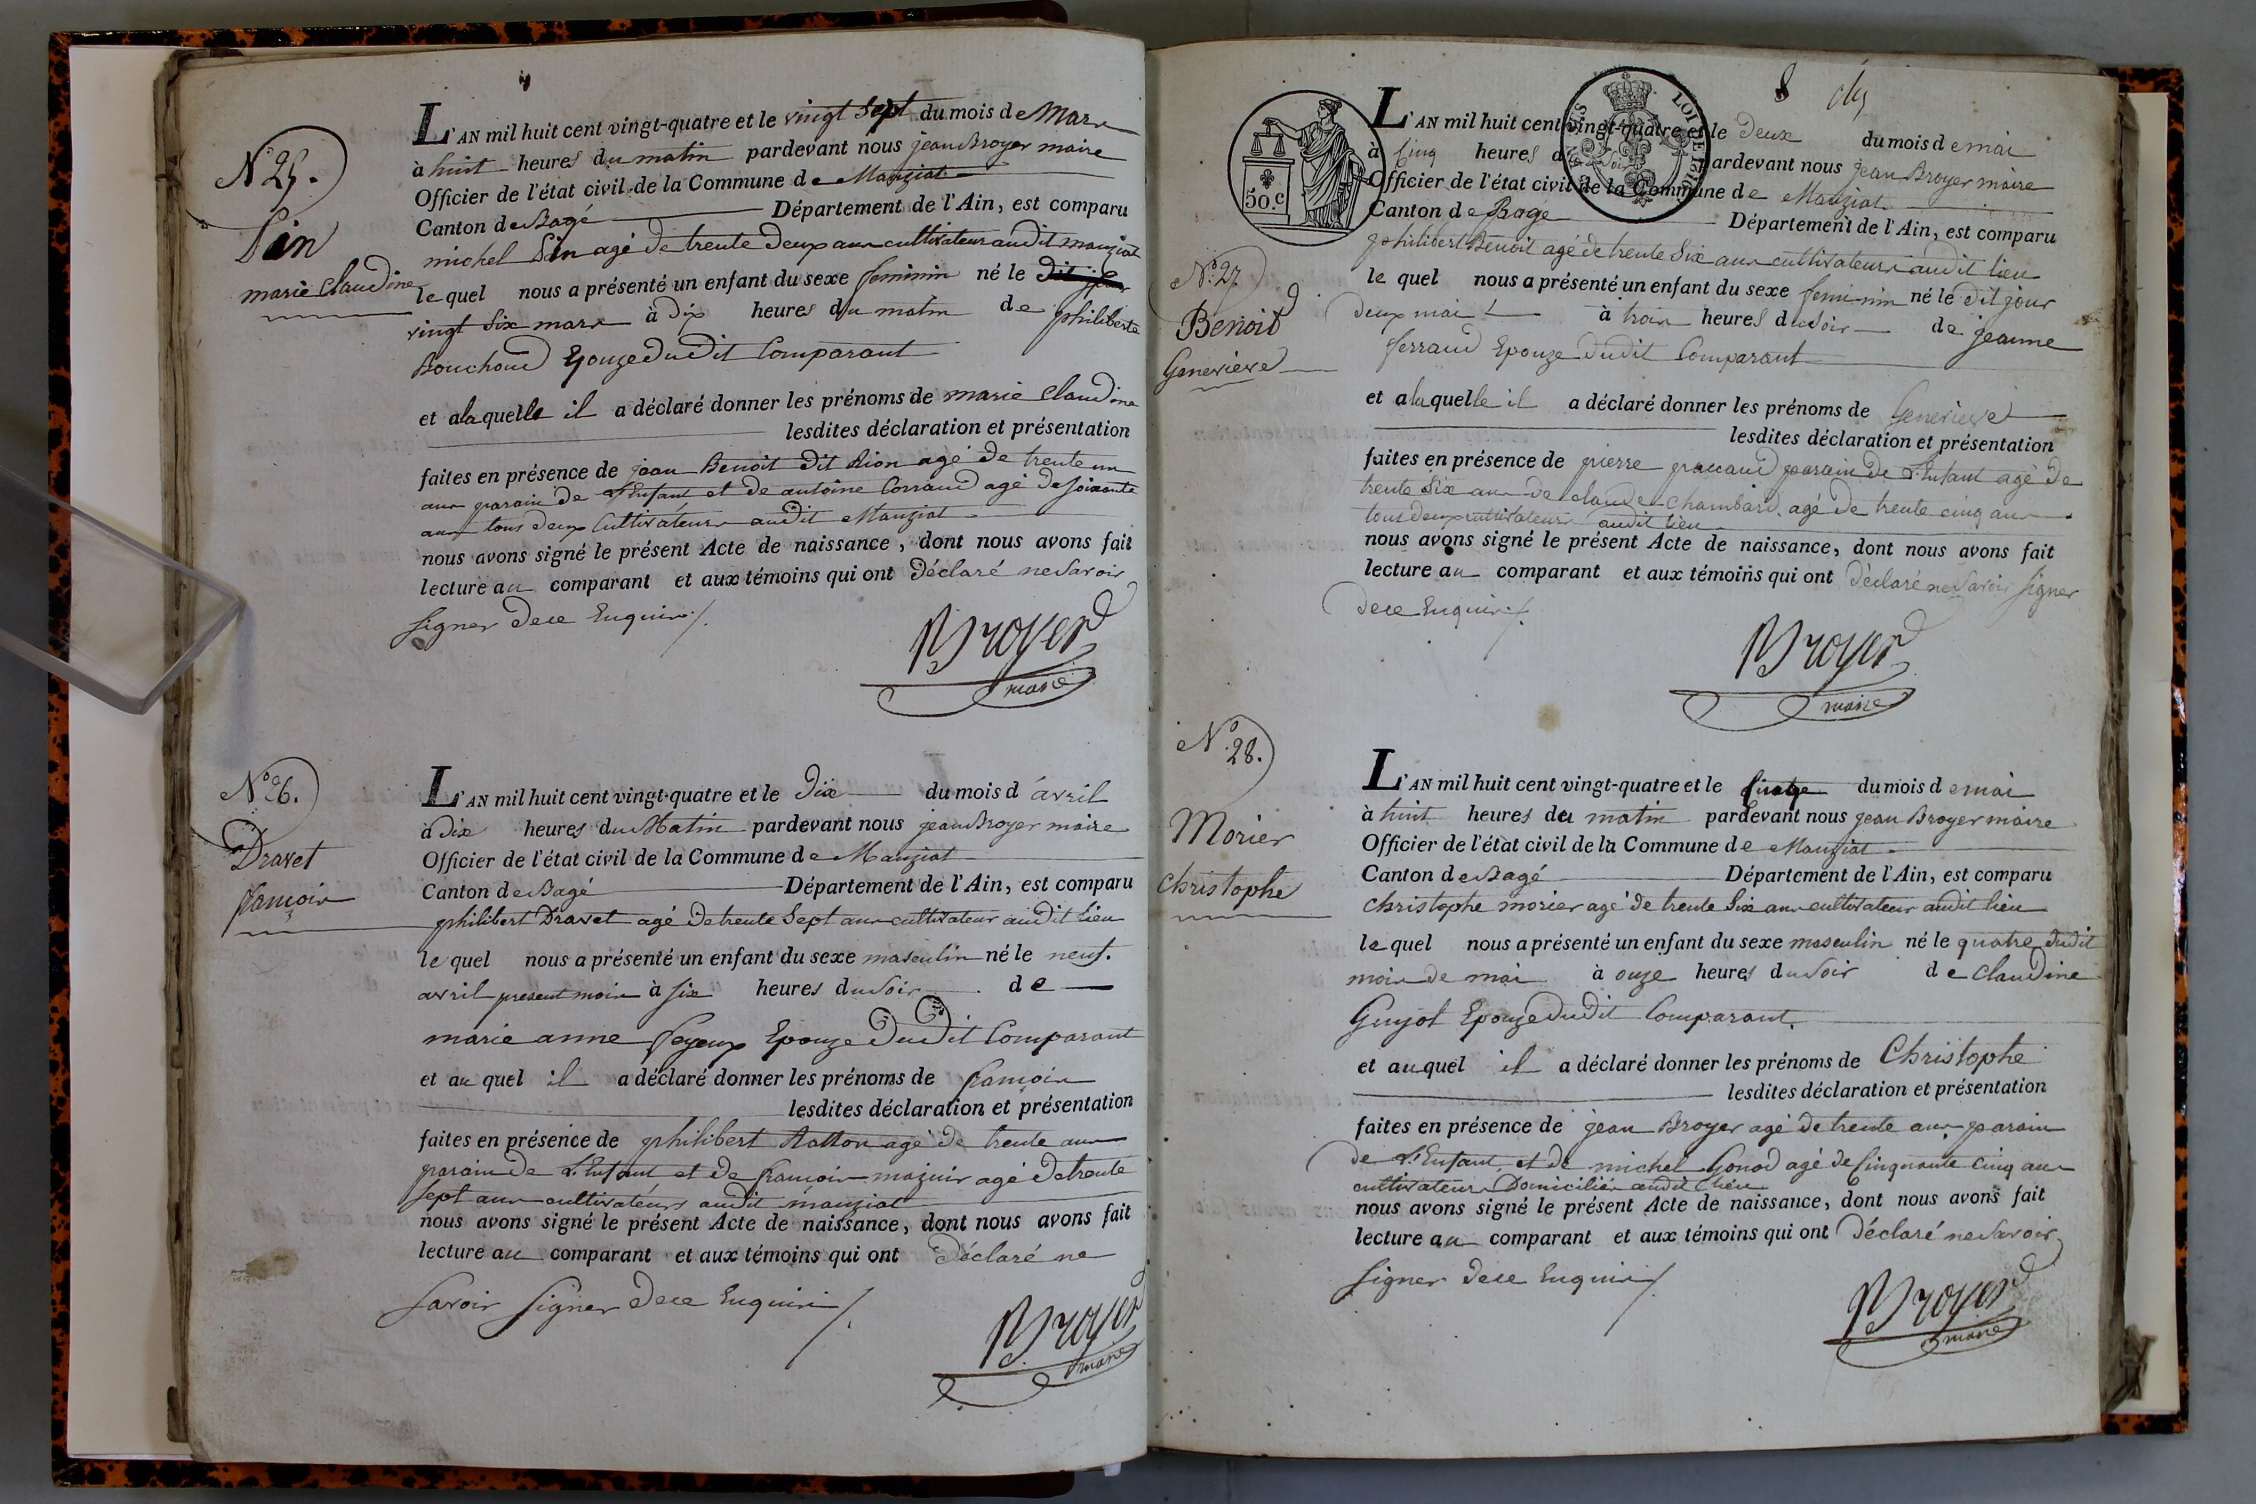 N.° 25.
Pin
marie Claudine
L'AN mil huit cent vingt-quatre et le vingt Sept du mois de Mars
à huit heures du matin pardevant nous jean Broyer maire
Officier de l'état civil de la Commune de Manziat
Canton de Bagé Département de l'Ain, est comparu
michel Pin agé de trente deux ans cultivateur audit manziat
le quel nous a présenté un enfant du sexe feminin né le
vingt Six mars à dix heures du matin de philiberte
Bouchoud Epouze dudit Comparant
et a laquelle il a déclaré donner les prénoms de marie Claudine
lesdites déclaration et présentation
faites en présence de jean Benoit dit Rion agé de trente un
ans parain de L'Enfant et de antoine Corraud agé de Soixante
ans tous deux Cultivateurs audit Manziat
nous avons signé le présent Acte de naissance, dont nous avons fait
lecture au comparant et aux témoins qui ont déclaré ne Savoir
Signer de ce Enquis /.
Broyer
maire
N.° 26.
Dravet
francois
L'AN mil huit cent vingt-quatre et le Dix du mois d avril
à Dix heures du Matin pardevant nous jean Broyer maire
Officier de l'état civil de la Commune de Manziat
Canton de Bagé Département de l'Ain, est comparu
philibert Dravet agé de trente Sept ans cultivateur audit lieu
le quel nous a présenté un enfant du sexe masculin né le neuf.
avril present mois à Six heures du Soir de
marie anne feyeux Epouze Dudit Comparant
et au quel il a déclaré donner les prénoms de francois
lesdites déclaration et présentation
faites en présence de philibert Ratton agé de trente ans
parain de L'Enfant et de francois mazuir agé de trente
Sept ans cultivateurs audit manziat
nous avons signé le présent Acte de naissance, dont nous avons fait
lecture au comparant et aux témoins qui ont déclaré ne
Savoir Signer de ce Enquis /.
Broyer
maire
8
50.c
LOI DE 1816
N.° 27
Benoit
Genevieve
L'AN mil huit cent vingt-quatre et le Deux du mois de mai
à Cinq heures d pardevant nous jean Broyer maire
Officier de l'état civil de la Commune de Manziat
Canton de Bagé Département de l'Ain, est comparu
philibert Benoit agé de trente Six ans cultivateur audit lieu
le quel nous a présenté un enfant du sexe feminin né le dit jour
deux mai à trois heures du Soir de jeanne
ferraud Epouze Dudit Comparant
et a laquelle il a déclaré donner les prénoms de Genevieve
lesdites déclaration et présentation
faites en présence de pierre parain de L'Enfant agé de
trente Six ans de claude Chambard agé de trente cinq ans
tous deux cultivateurs audit lieu
nous avons signé le présent Acte de naissance, dont nous avons fait
lecture au comparant et aux témoins qui ont Déclaré ne Savoir Signer
de ce Enquis /.
Broyer
maire
N.° 28.
Morier
Christophe
L'AN mil huit cent vingt-quatre et le du mois de mai
à huit heures du matin pardevant nous jean Broyer maire
Officier de l'état civil de la Commune de Manziat
Canton de Bagé Département de l'Ain, est comparu
Christophe morier agé de trente Six ans cultivateur audit lieu
le quel nous a présenté un enfant du sexe masculin né le quatre dudit
mois de mai à onze heures du Soir de claudine
Guyot Epouze Dudit Comparant.
et au quel il a déclaré donner les prénoms de Christophe
lesdites déclaration et présentation
faites en présence de jean Broyer agé de trente ans parain
de L'Enfant et de michel Gonod agé de Cinquante Cinq ans
cultivateurs Domiciliés audit lieu
nous avons signé le présent Acte de naissance, dont nous avons fait
lecture au comparant et aux témoins qui ont Déclaré ne Savoir
Signer de ce Enquis /.
Broyer
maire